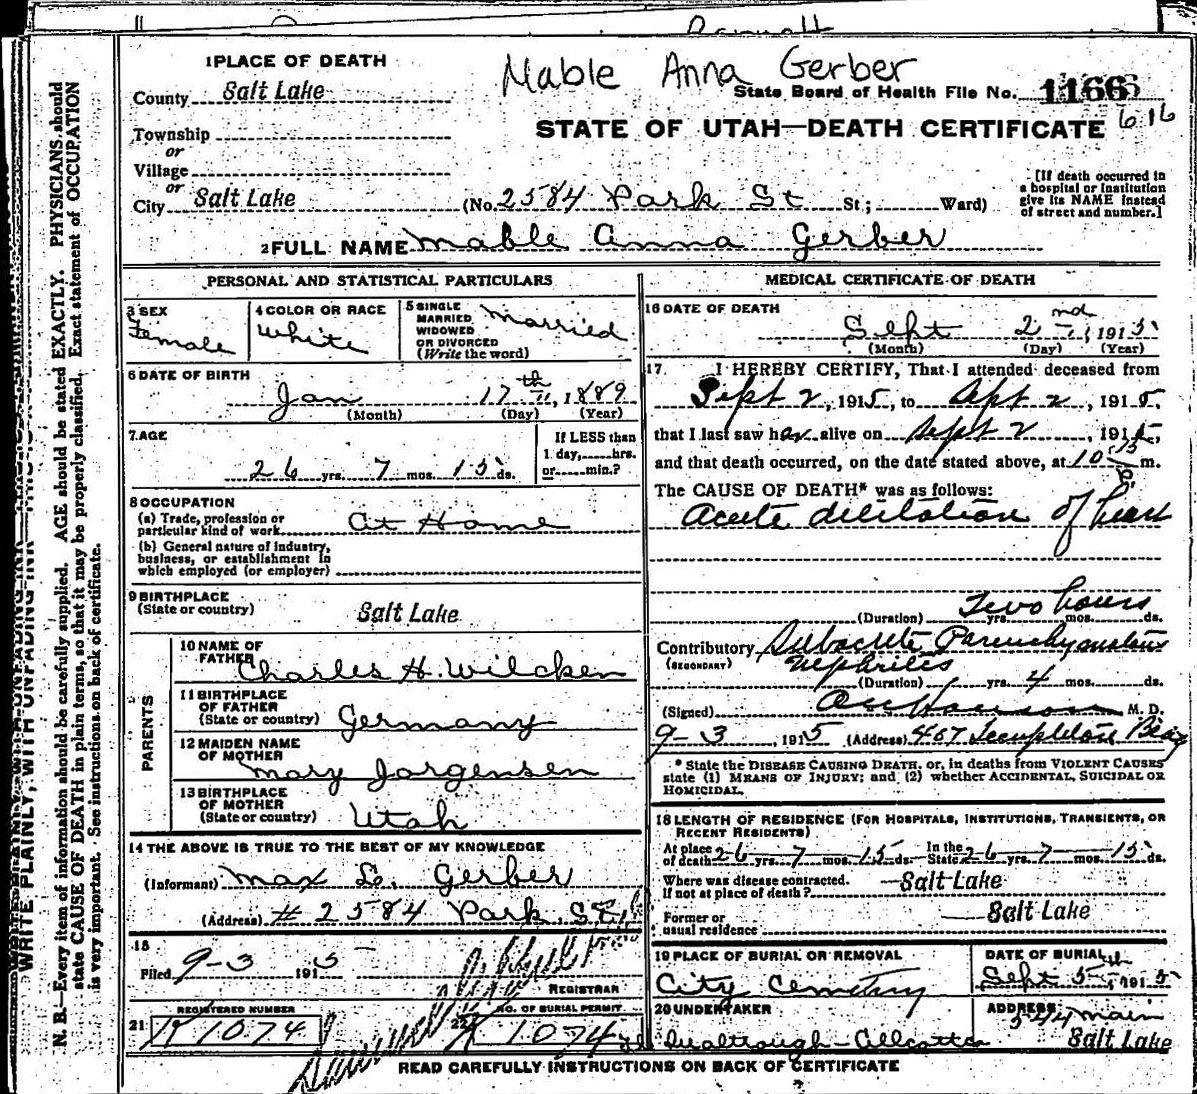 Mable Anna Gerber
1 PLACE OF DEATH
County Salt Lake
State Board of Health File No. 1166
616
Township
or
STATE OF UTAH—DEATH CERTIFICATE
Village
or
City Salt Lake (No. 2584 Park St St; Ward)
[If death occurred in
a hospital or institution
give its NAME instead
of street and number.]
2 FULL NAME Mable Anna Gerber
PERSONAL AND STATISTICAL PARTICULARS
3 SEX
Female
4 COLOR OR RACE
White
5 SINGLE
MARRIED
WIDOWED
OR DIVORCED
(Write the word)
Married
6 DATE OF BIRTH
Jan 17th, 1889
(Month) (Day) (Year)
7 AGE
26 yrs. 7 mos. 15 ds.
If LESS than
1 day, hrs.
or min.?
8 OCCUPATION
(a) Trade, profession or
particular kind of work At Home
(b) General nature of industry,
business, or establishment in
which employed (or employer)
9 BIRTHPLACE
(State or country) Salt Lake
PARENTS
10 NAME OF
FATHER Charles H. Wilcken
11 BIRTHPLACE
OF FATHER
(State or country) Germany
12 MAIDEN NAME
OF MOTHER
Mary Jorgensen
13 BIRTHPLACE
OF MOTHER
(State or country) Utah
14 THE ABOVE IS TRUE TO THE BEST OF MY KNOWLEDGE
(Informant) Max L. Gerber
(Address) # 2584 Park St.
15
Filed 9-3 1915
REGISTRAR
REGISTERED NUMBER
21 1074
NO. OF BURIAL PERMIT
22 1074
MEDICAL CERTIFICATE OF DEATH
16 DATE OF DEATH
Sept 2nd, 1915
(Month) (Day) (Year)
17 I HEREBY CERTIFY, That I attended deceased from
Sept 2, 1915, to Sept 2, 1915,
that I last saw her alive on Sept 2, 1915,
and that death occurred, on the date stated above, at 10 m.
The CAUSE OF DEATH* was as follows:
Acute dilitation of heart
Two hours
(Duration) yrs. mos. ds.
Contributory Subacute Parenchymatous
(SECONDARY) Nephritis
(Duration) yrs. 4 mos. ds.
(Signed) M. D.
9-3, 1915 (Address) 407 Templeton Bldg
* State the DISEASE CAUSING DEATH, or, in deaths from VIOLENT CAUSES
state (1) MEANS OF INJURY; and (2) whether ACCIDENTAL, SUICIDAL OR
HOMICIDAL.
18 LENGTH OF RESIDENCE (FOR HOSPITALS, INSTITUTIONS, TRANSIENTS, OR
RECENT RESIDENTS)
At place
of death 26 yrs. 7 mos. 15 ds. In the
State 26 yrs. 7 mos. 15 ds.
Where was disease contracted.
If not at place of death? Salt Lake
Former or
usual residence Salt Lake
19 PLACE OF BURIAL OR REMOVAL
City Cemetery
DATE OF BURIAL
Sept 5th, 1915
20 UNDERTAKER
ADDRESS
Main
Salt Lake
READ CAREFULLY INSTRUCTIONS ON BACK OF CERTIFICATE
N. B.—Every item of information should be carefully supplied. AGE should be stated EXACTLY. PHYSICIANS should
state CAUSE OF DEATH in plain terms, so that it may be properly classified. Exact statement of OCCUPATION
is very important. See instructions on back of certificate.
WRITE PLAINLY, WITH UNFADING INK